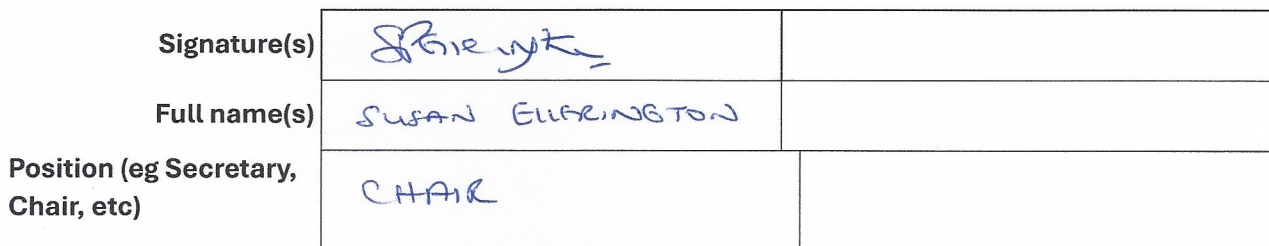 Signature(s)
Full name(s) SUSAN ELLERINGTON
Position (eg Secretary,
Chair, etc) CHAIR